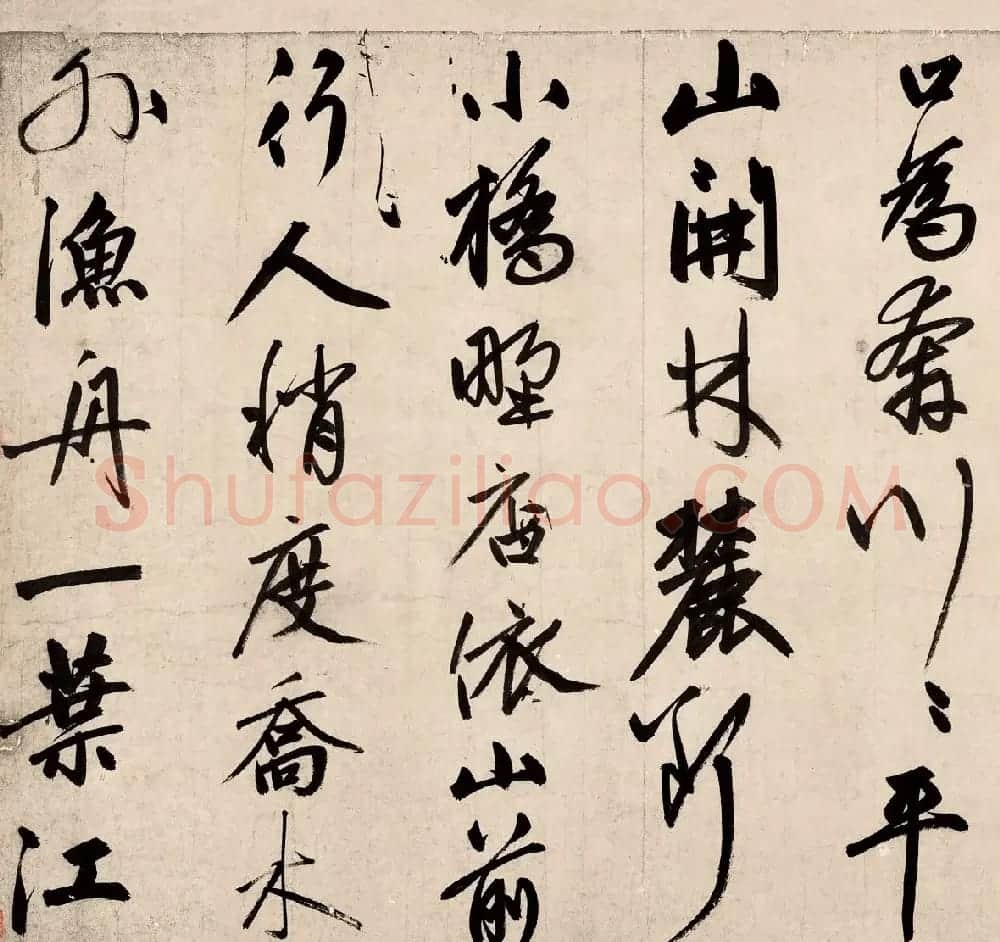 口為奔川〻平
山開林麓斷
小橋野店依山前
行人稍度喬木
外漁舟一葉江
Shufaziliao.COM